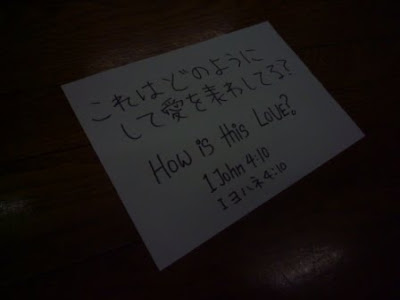 これはどのように
して愛を表わしてる?
How is this LOVE?
1 John 4:10
I ヨハネ 4:10